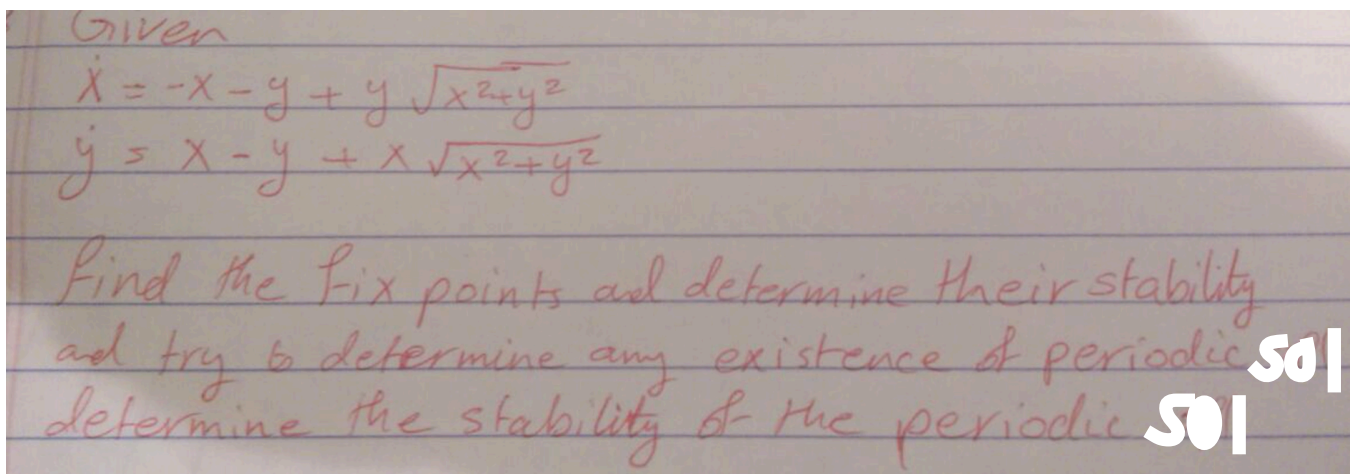 Given
ẋ = -x - y + y √x²+y²
ẏ = x - y + x √x²+y²
find the fix points ad determine their stability
ad try to determine any existence of periodic sol
determine the stability of the periodic sol